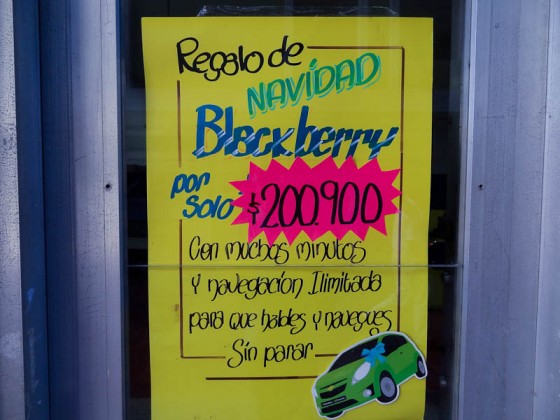 Regalo de
NAVIDAD
Blackberry
por
solo
$200.900
Con muchos minutos
y navegación Ilimitada
para que hables y navegues
Sin parar